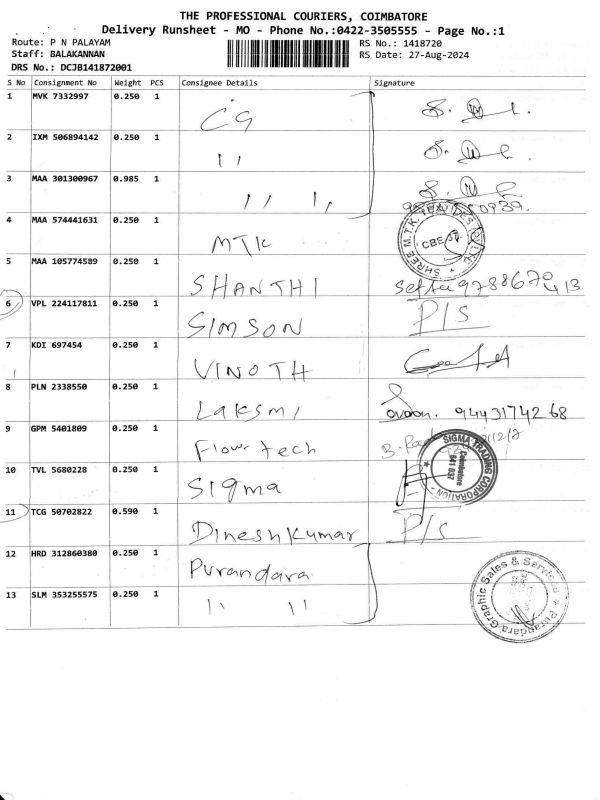 THE PROFESSIONAL COURIERS, COIMBATORE
Delivery Runsheet - MO - Phone No.:0422-3505555 - Page No.:1
Route: P N PALAYAM RS No.: 1418720
Staff: BALAKANNAN RS Date: 27-Aug-2024
DRS No.: DCJB141872001
S No Consignment No Weight PCS Consignee Details Signature
1 MVK 7332997 0.250 1 CG
2 IXM 506894142 0.250 1 ,,
3 MAA 301300967 0.985 1 ,, ,,
4 MAA 574441631 0.250 1 MTK SHREE M.T.K. CBE
5 MAA 105774589 0.250 1 SHANTHI 9788670413
6 VPL 224117811 0.250 1 SIMSON P/S
7 KDI 697454 0.250 1 VINOTH
8 PLN 2338550 0.250 1 Laksmi 9443174268
9 GPM 5401809 0.250 1 Flowr tech
10 TVL 5680228 0.250 1 Sigma SIGMA TRADING CORPORATION Coimbatore 641 037
11 TCG 50702822 0.590 1 Dinesh Kumar P/S
12 HRD 312860380 0.250 1 Purandara
13 SLM 353255575 0.250 1 ,, ,, Purandara Graphic Sales & Services